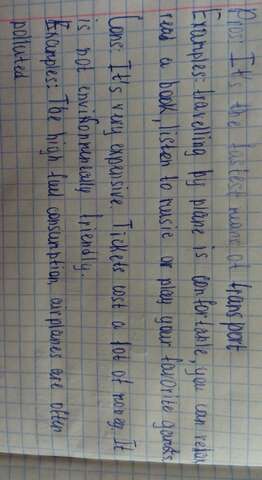 Pros: It's the fastest means of transport
Examples: travelling by plane is comfortable, you can relax,
read a book, listen to music or play your favorite games.
Cons: It's very expensive. Tickets cost a lot of money. It
is not environmentally friendly.
Examples: The high fuel consumption airplanes are often
polluted